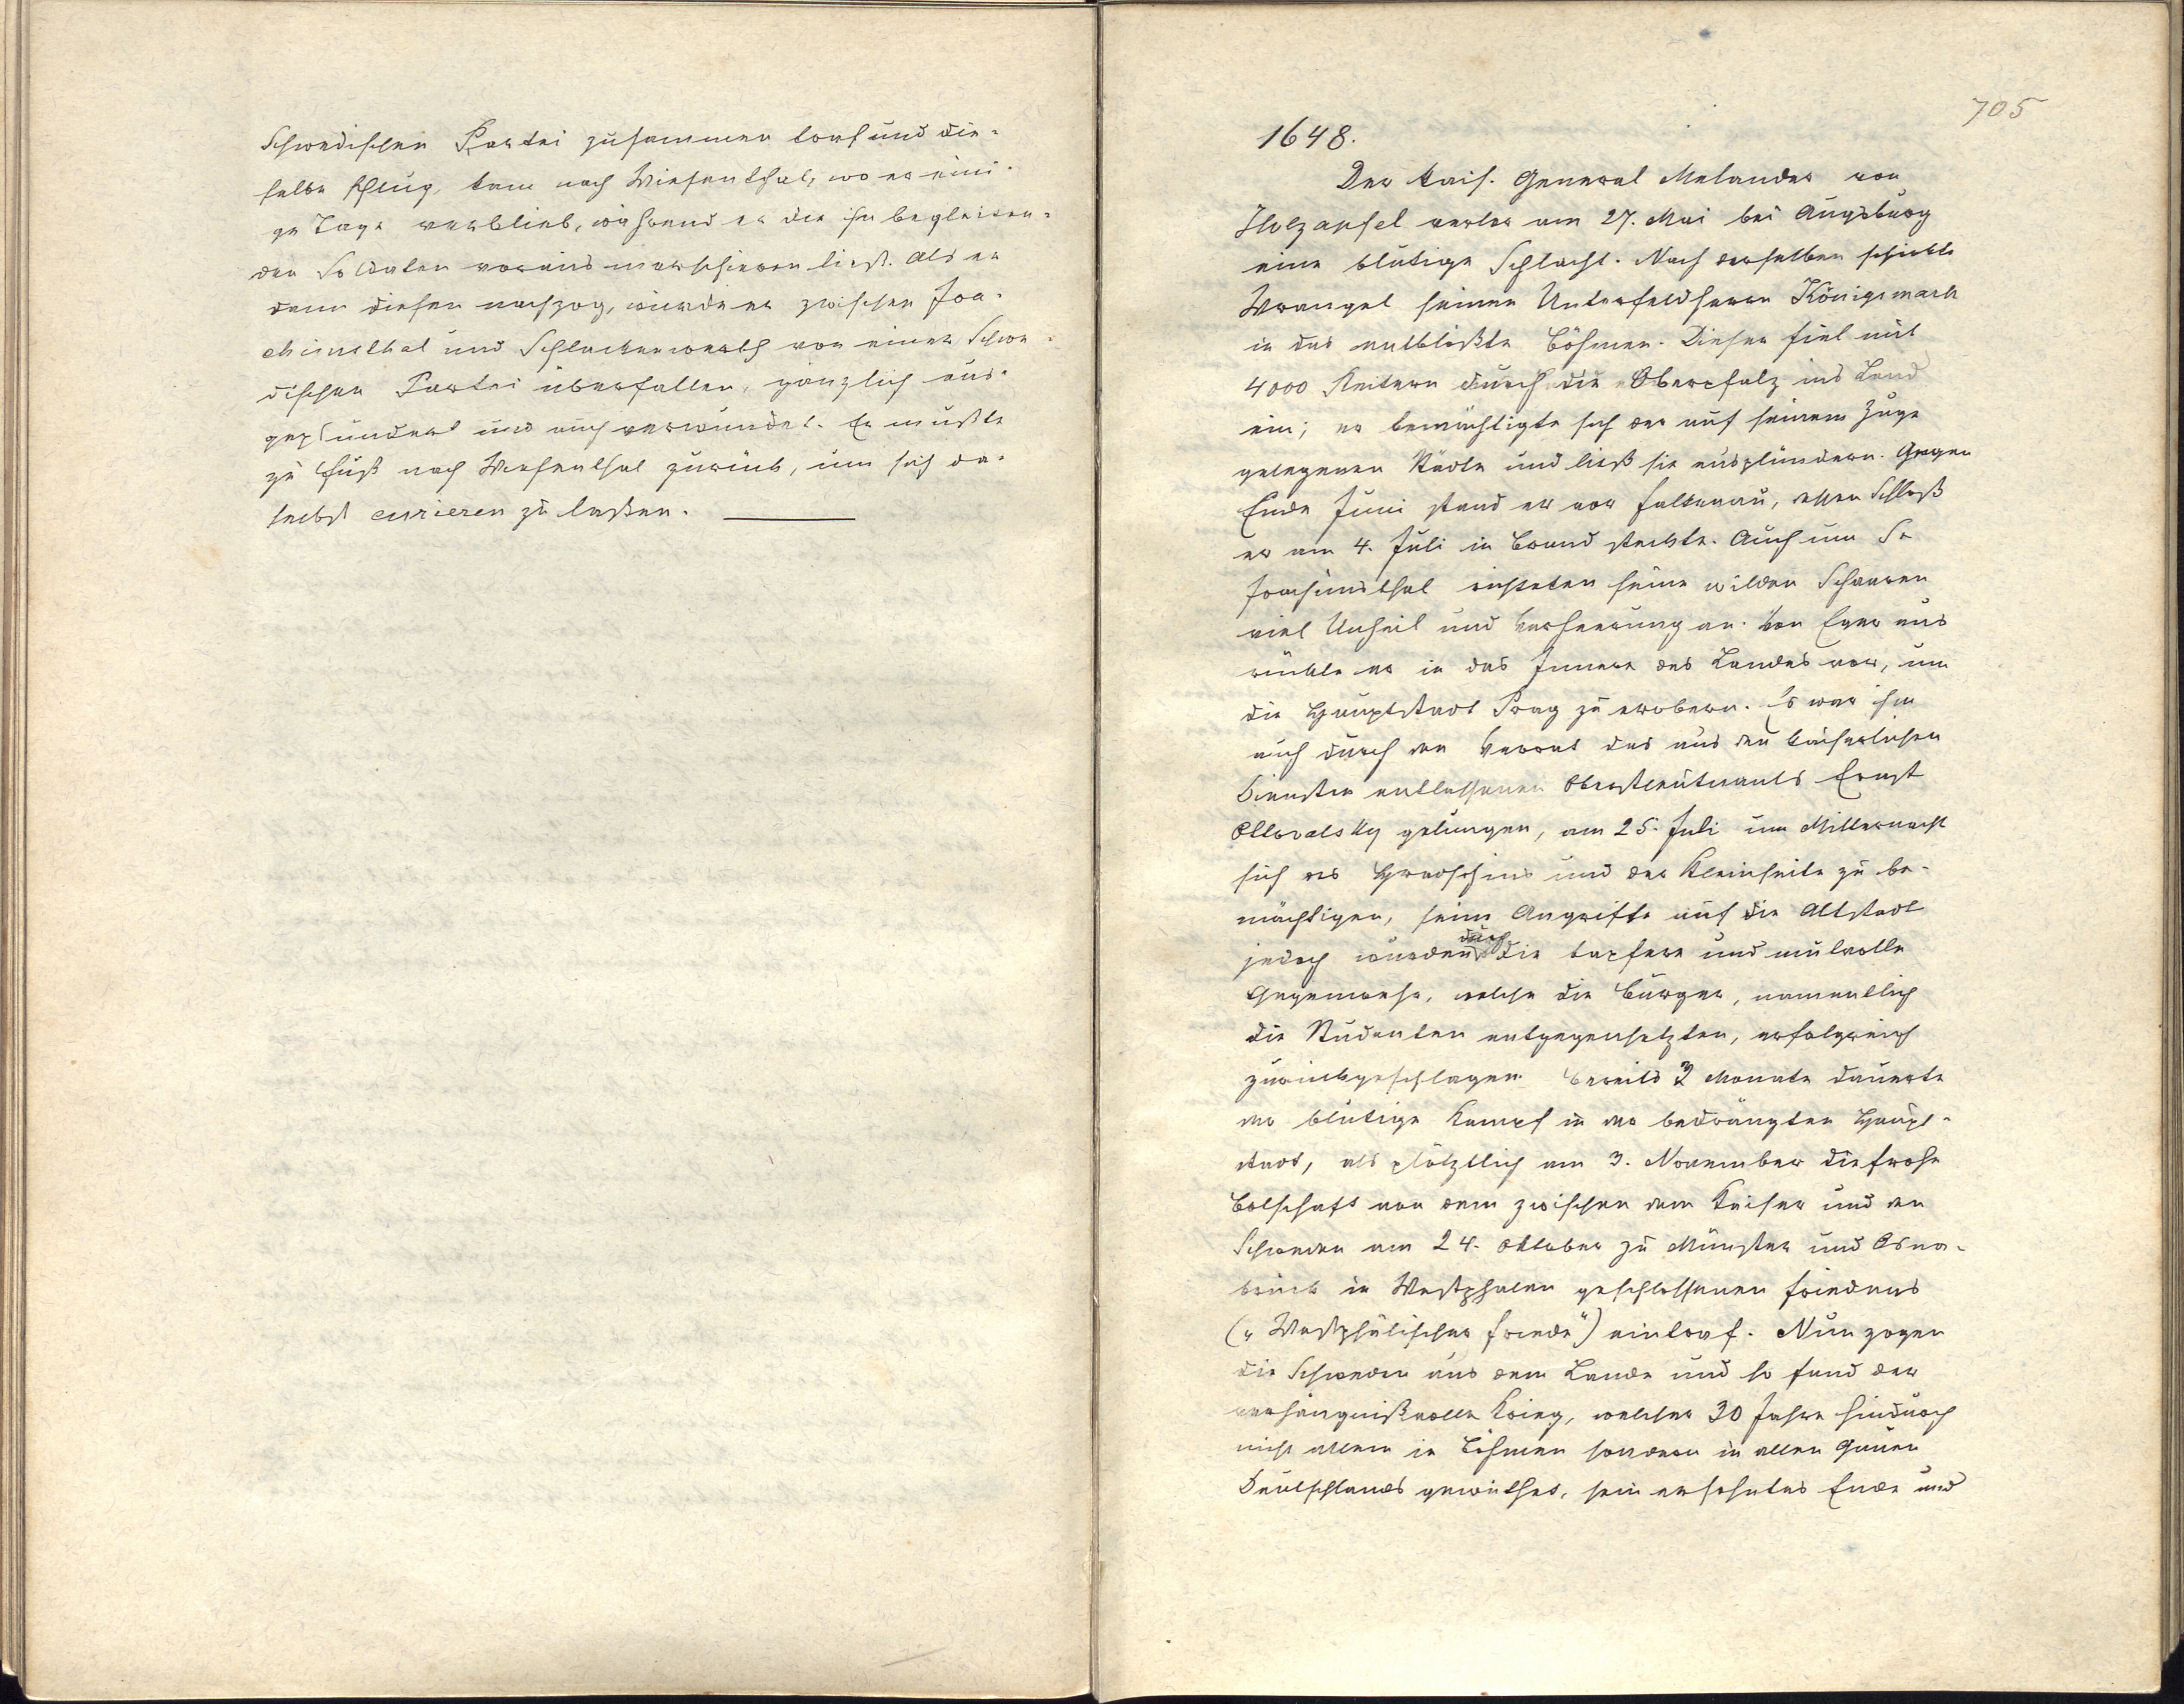 Schwedischen Partei zusammen traf und die-
selbe schlug, kam nach Wiesenthal, wo er eini-
ge Tage verblieb, während er die ihn begleiten-
den Soldaten voraus marschieren ließ. Als er
dann diesen nachzog, wurde er zwischen Joa-
chimsthal und Schlackenwerth von einer Schwe-
dischen Partei überfallen, gänzlich aus-
geplündert und auch verwundet. Er mußte
zu Fuß nach Wiesenthal zurück, um sich da-
selbst curieren zu laßen.
705
1648.
Der kais. General Melander von
Holzapfel verlor am 27. Mai bei Augsburg
eine blutige Schlacht. Nach derselben schickte
Wrangel seinen Unterfeldherrn Königsmark
in das entblößte Böhmen. Dieser fiel mit
4000 Reitern durch die Oberpfalz ins Land
ein; er bemächtigte sich der auf seinem Zuge
gelegenen Städte und ließ sie ausplündern. Gegen
Ende Juni stand er vor Falkenau, deßen Schloß
er am 4. Juli in Brand steckte. Auch um St
Joachimsthal richteten seine wilden Schaaren
viel Unheil und Verheerung an. Von Eger aus
rückte er in das Innere des Landes vor, um
die Hauptstadt Prag zu erobern. Es war ihm
auch durch den Verrat des aus den kaiserlichen
Diensten entlassenen Oberstleutnants Ernst
Ottovalsky gelungen, am 25. Juli um Mitternacht
sich des Hradschins und der Kleinseite zu be-
mächtigen, seine Angriffe auf die Altstadt
jedoch wurden durch die tapfere und mutvolle
Gegenwehr, welche die Bürger, namentlich
die Studenten entgegensetzten, erfolgreich
zurückgeschlagen. Bereits 3 Monate dauerte
der blutige Kampf in der bedrängten Haupt-
stadt, als plötzlich am 3. November die frohe
Botschaft von dem zwischen dem Kaiser und den
Schweden am 24. Oktober zu Münster und Osna-
brück in Westphalen geschlossenen Friedens
(„Westphälischer Friede") eintraf. Nun zogen
die Schweden aus dem Lande und so fand der
verhängnißvolle Krieg, welcher 30 Jahre hindurch
nicht allein in Böhmen sondern in allen Gauen
Deutschlands gewüthet, sein ersehntes Ende und